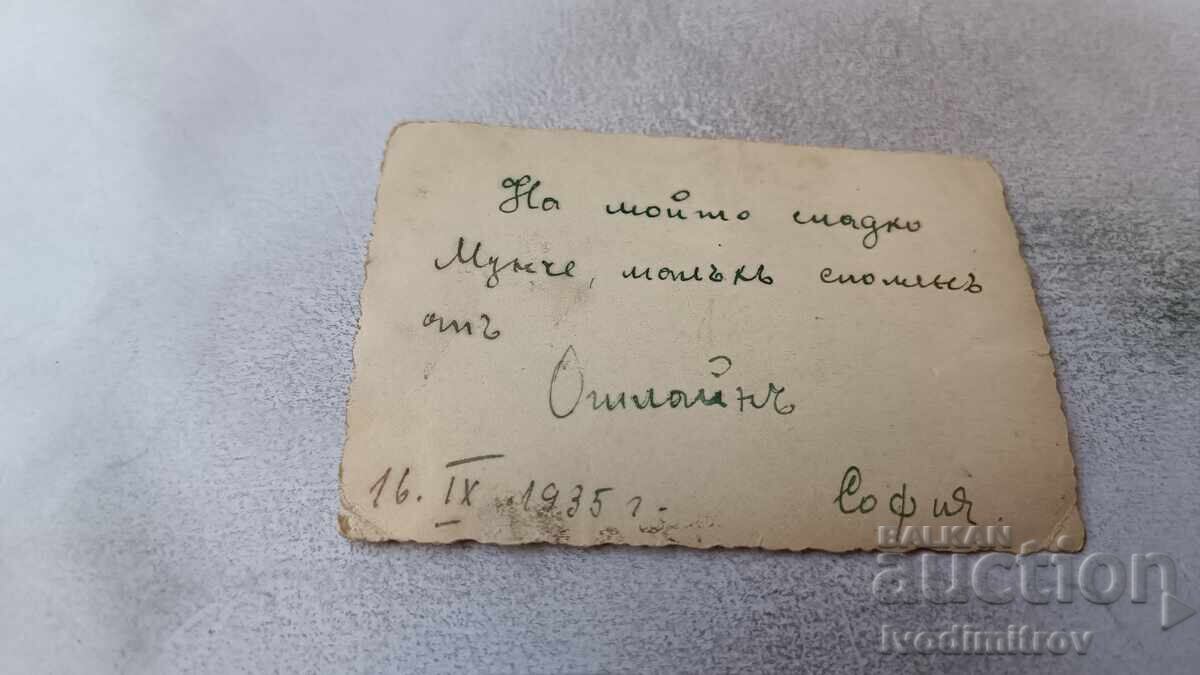 На мойто сладко
Мунче, малъкъ споменъ
отъ
Ошлайнъ
16. IX 1935 г.
София.
BALKAN
auction
ivodimitrov